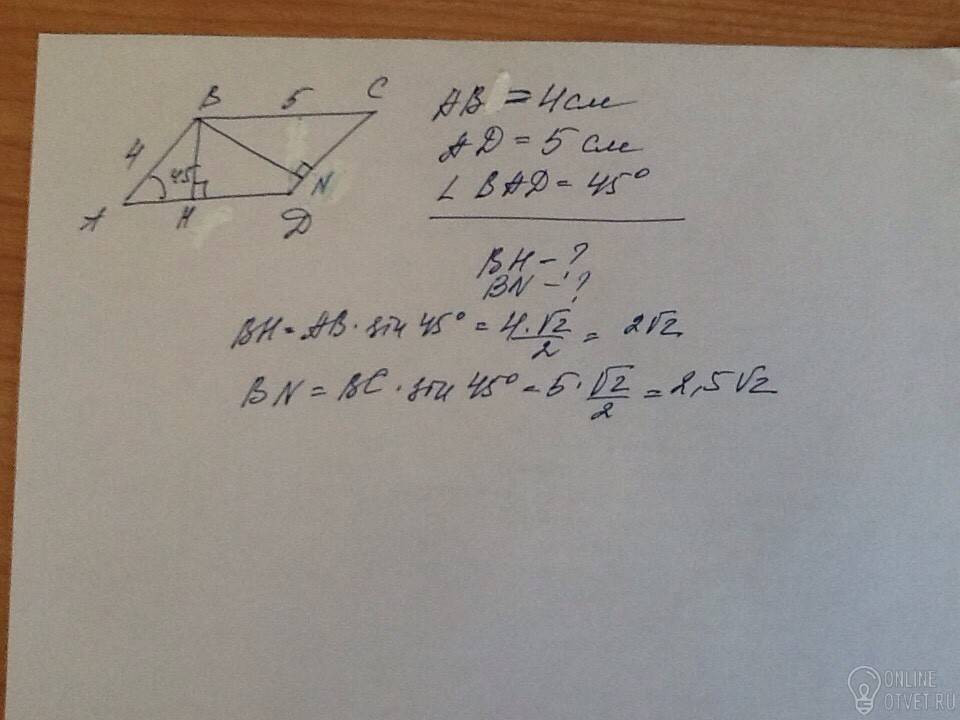 B 5 C
4
45
A H D N
AB = 4 см
AD = 5 см
∠ BAD = 45°
BH - ?
BN - ?
BH = AB · sin 45° = 4 · √2/2 = 2√2
BN = BC · sin 45° = 5 · √2/2 = 2,5 √2
ONLINE
OTVET.RU